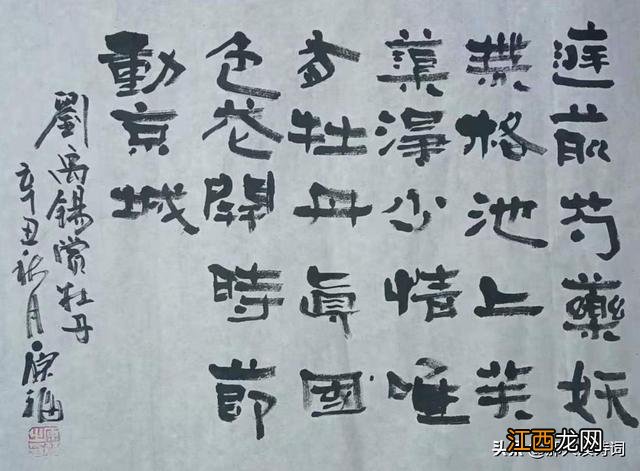 庭前芍藥妖
無格池上芙
蕖淨少情唯
有牡丹眞國
色花開時節
動京城
劉禹錫賞牡丹
辛丑秋月
江西龙网
头条
诗词